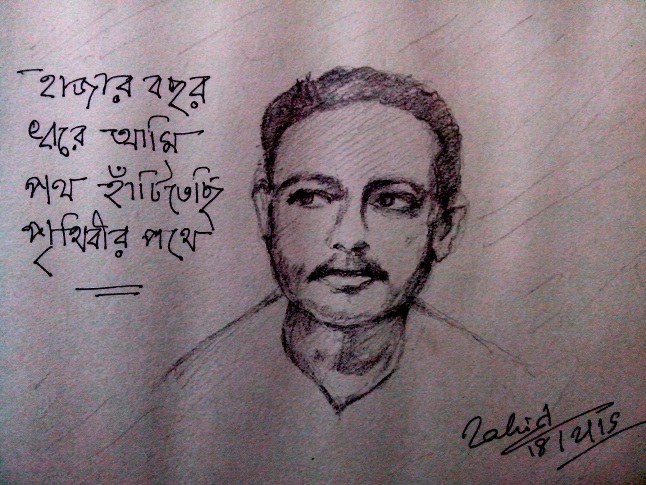 হাজার বছর
ধরে আমি
পথ হাঁটিতেছি
পৃথিবীর পথে
Zahid
18/2/15